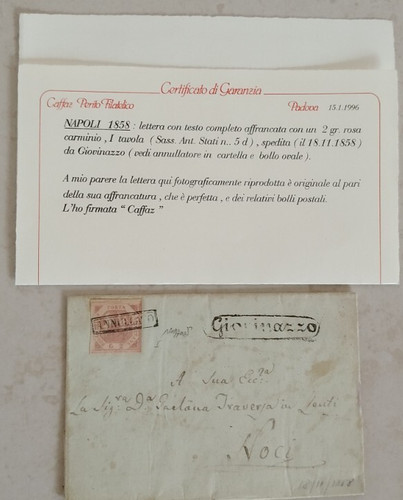 Certificato di Garanzia
Caffaz Perito Filatelico Padova 15.1.1996
NAPOLI 1858 : lettera con testo completo affrancata con un 2 gr. rosa
carminio , I tavola ( Sass. Ant. Stati n.. 5 d ) , spedita ( il 18.11.1858 )
da Giovinazzo ( vedi annullatore in cartella e bollo ovale ) .
A mio parere la lettera qui fotograficamente riprodotta è originale al pari
della sua affrancatura , che è perfetta , e dei relativi bolli postali.
L'ho firmata " Caffaz "
ANNULLATO
Giovinazzo
A Sua Ecc.za
La Sig.ra D.a Gaetana Traversa in Lenti
Noci